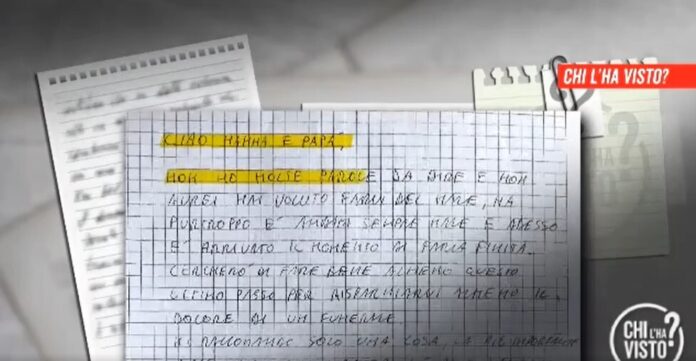 CHI L'HA VISTO?
CIAO MAMMA E PAPA',
NON HO MOLTE PAROLE DA DIRE E NON
AVREI MAI VOLUTO FARVI DEL MALE, MA
PURTROPPO E' ANDATA SEMPRE MALE E ADESSO
E' ARRIVATO IL MOMENTO DI FARLA FINITA.
CERCHERO DI FARE BENE ALMENO QUESTO
ULTIMO PASSO PER RISPARMIARVI ALMENO IL
DOLORE DI UN FUNERALE.
SOLO UNA COSA, LA PIU IMPORTANTE
CHI L'HA
VISTO?